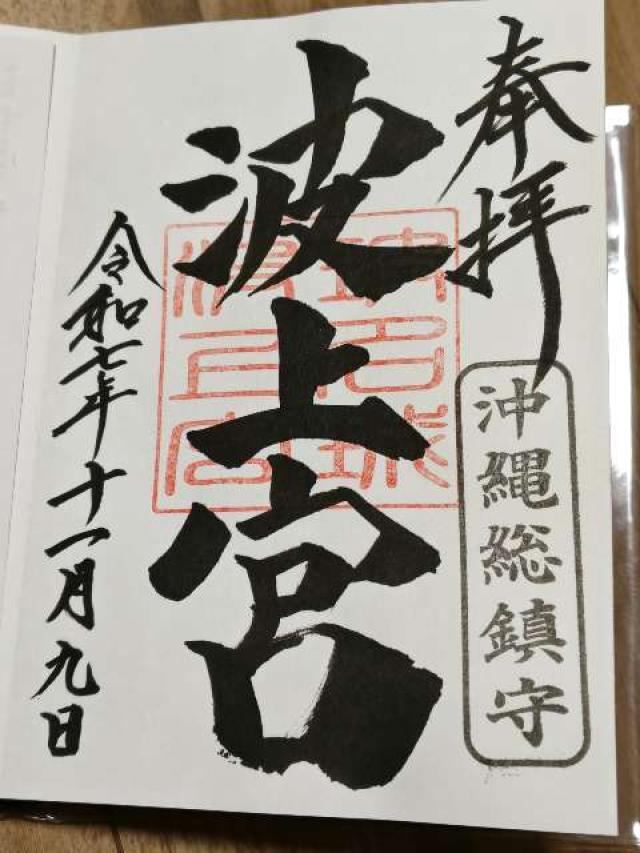 奉拝
沖縄総鎮守
波上宮
令和七年十一月九日